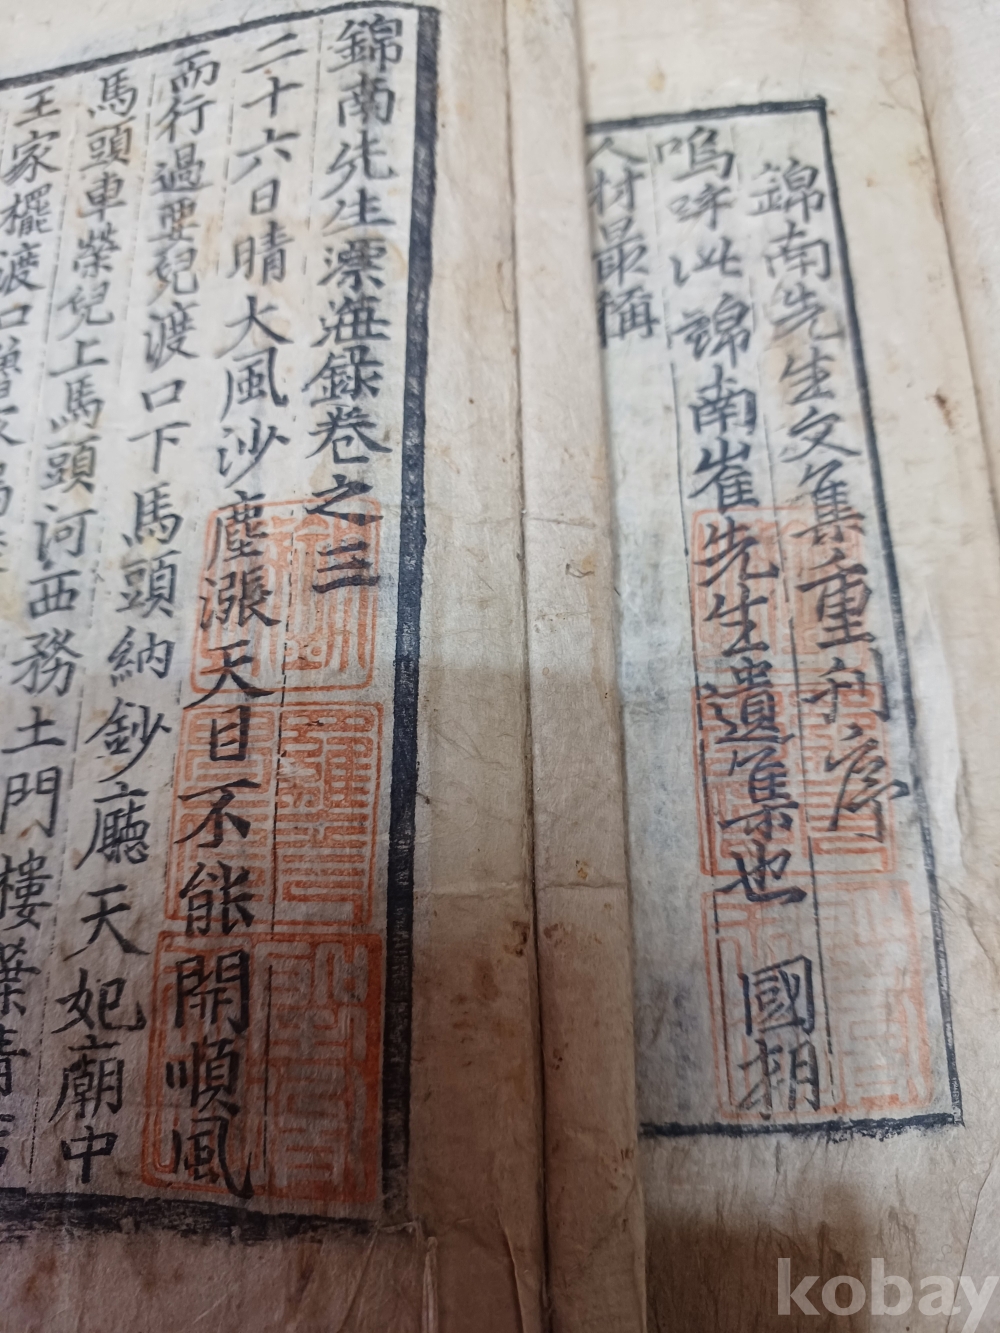 錦南先生文集重刊序
嗚呼此錦南崔先生遺集也國朝
人材最稱
錦南先生漂海錄卷之三
二十六日晴大風沙塵漲天目不能開順風
而行過要兒渡口下馬頭納鈔廳天妃廟中
馬頭車榮兒上馬頭河西務土門樓葉清店
王家擺渡口
kobay